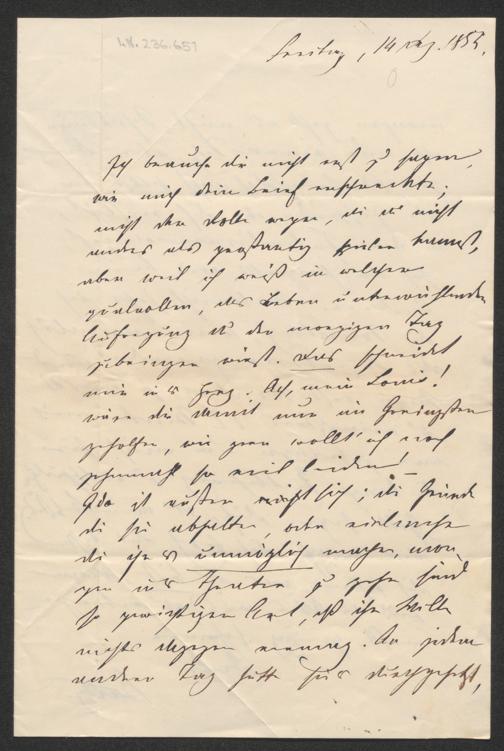 I.N. 236.657
Freitag, 14 Dez. 1855.
Ich brauche dir nicht erst zu sagen,
wie mich dein Brief erschreckte;
nicht der Rolle wegen, die du nicht
anders als großartig spielen kannst,
aber weil ich weiß in welcher
qualvollen, das Leben unterwühlenden
Aufregung du den morgigen Tag
zubringen wirst. Das schneidet
mir in's Herz. Ach, mein Louis!
wäre dir damit nur im Geringsten
geholfen, wie gern wollt' ich noch
zehnmal so viel leiden!
Ida ist außer sich; die Gründe
die sie abhalten, oder vielmehr
die ihr es unmöglich machen, mor-
gen in's Theater zu gehn sind
so gewichtiger Art, daß ihr Wille
nichts dagegen vermag. An jedem
andern Tag hätte sie's durchgesetzt,